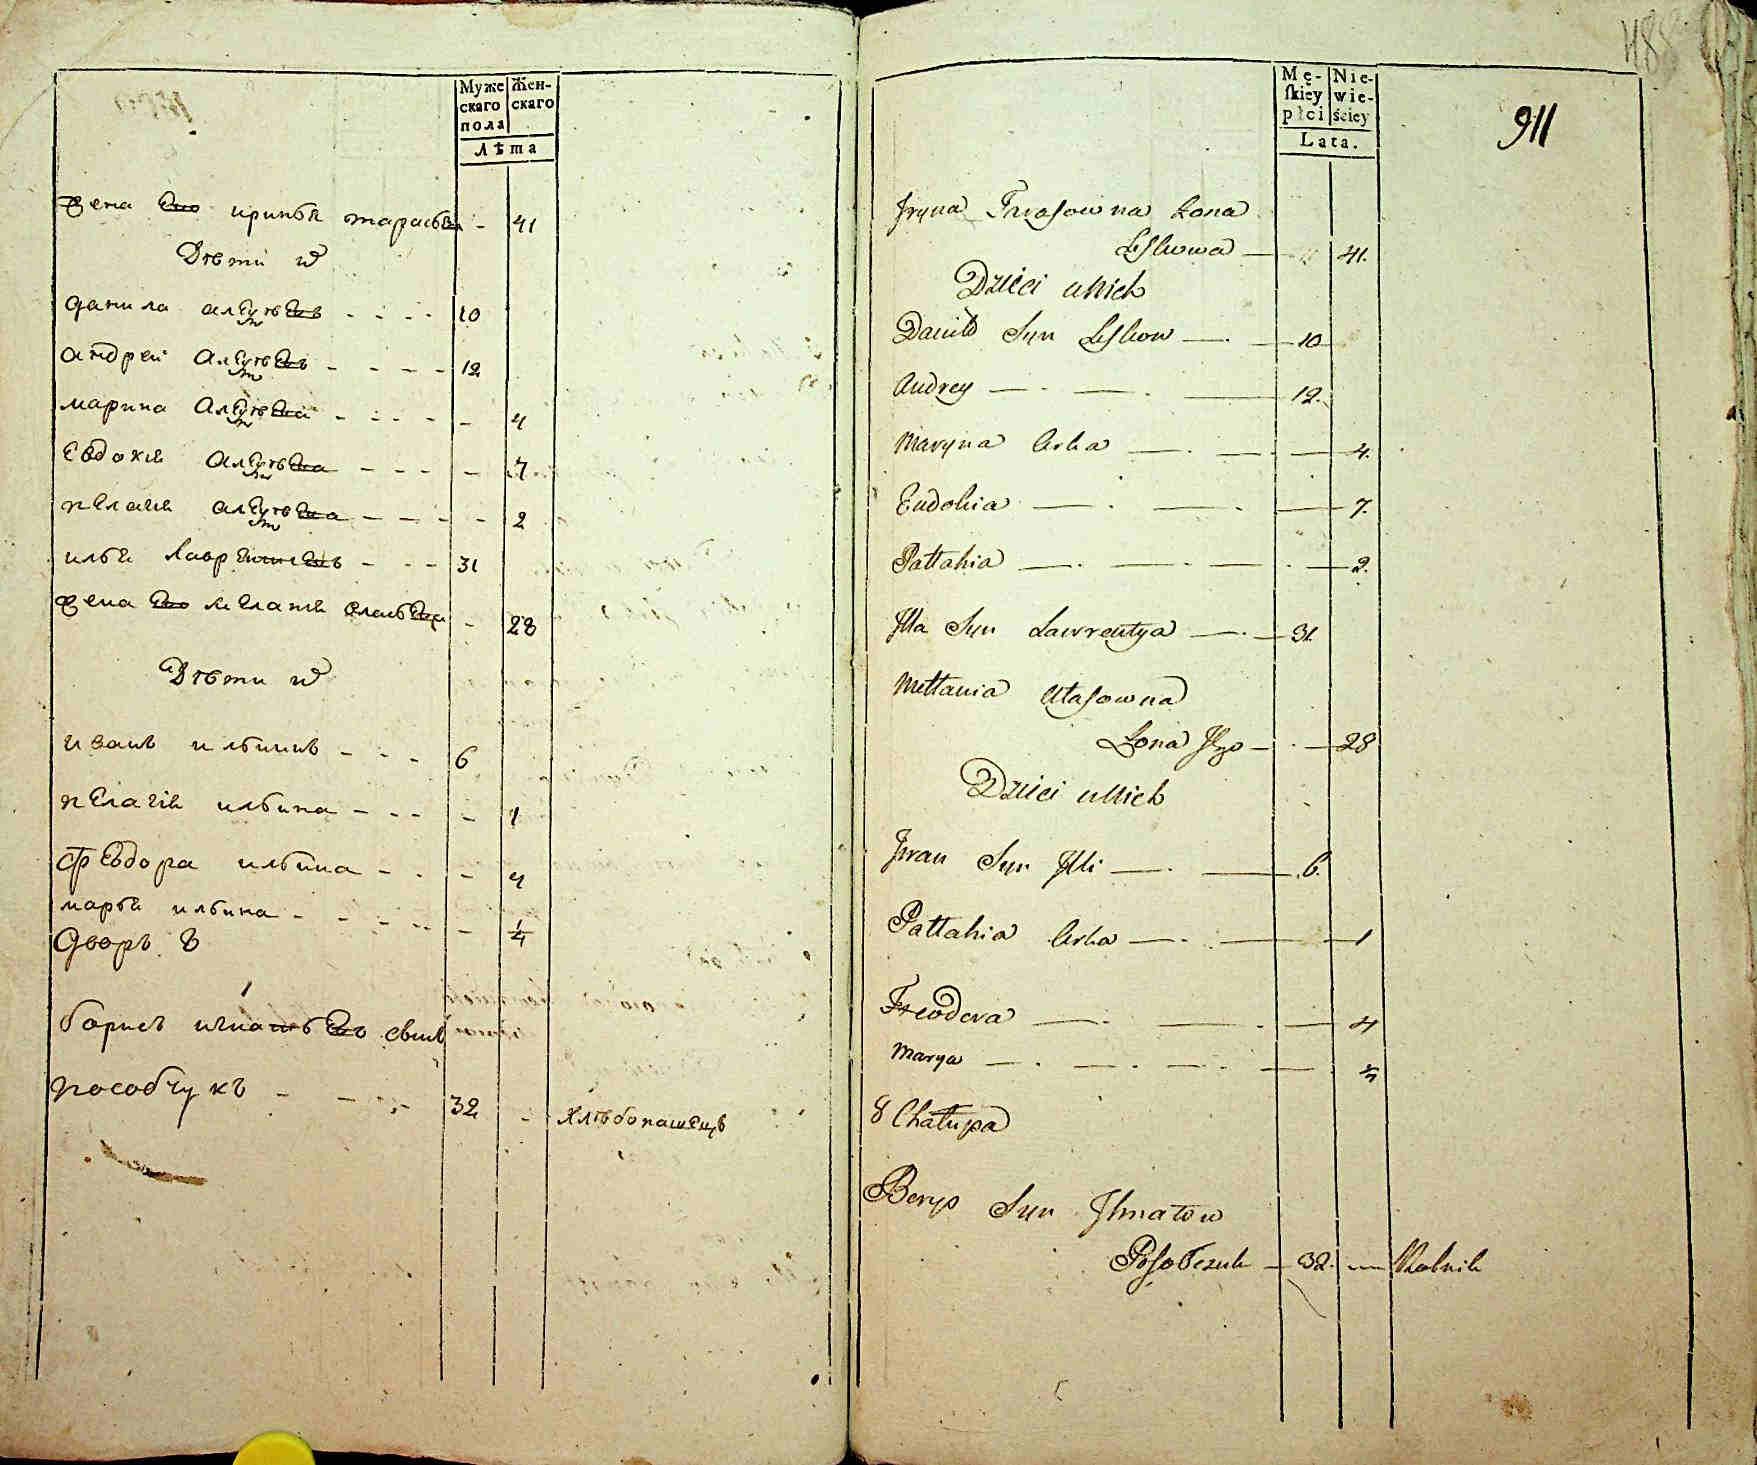 Муже Жен-
скаго скаго
пола
Лѣта
жена Его ириня тарасова - 41
Дѣти их
данила алексѣевъ - - - - 10
андреи Алексѣевъ - - - - 12
марина Алексѣева - - - - 4
Евдокия Алексѣева - - - - 7
пелагія алексѣева - - - - 2
илья Лаврентиевъ - - - 31
жена Его Меланья - 28
Дѣти их
иванъ ильинъ - - - 6
пелагія ильина - - - - 1
Феодора ильина - - - 4
марья ильина - - - - - 1/4
дворъ 8
1
борисъ игнатьевъ сынъ
пособчукъ - - - 32 - хлѣбопашецъ
488
Mę- Nie-
skiey wie-
płci ściey
Lata.
911
Jryna Tarasowna Żona
Leskowa — 41.
Dzieci u Nich
Daniło Syn Leskow — . — 10
Andrey — . — — 12.
Maryna Corka — . — . — 4.
Eudokia — . — . — 7.
Pałłahia — . — . — . — 2.
Jlla Syn Lawrentya — . — 31.
Mełłania
Żona Jego — . — 28
Dzieci u Nich
Jwan Syn Jlli — . — 6.
Pałłahia Corka — . — — 1
Fteodora — . — . — 4
Marya — . — . — . — 1/4
8 Chałupa
Borys Syn Jhnatow
Posobczuk — 32. — Rolnik